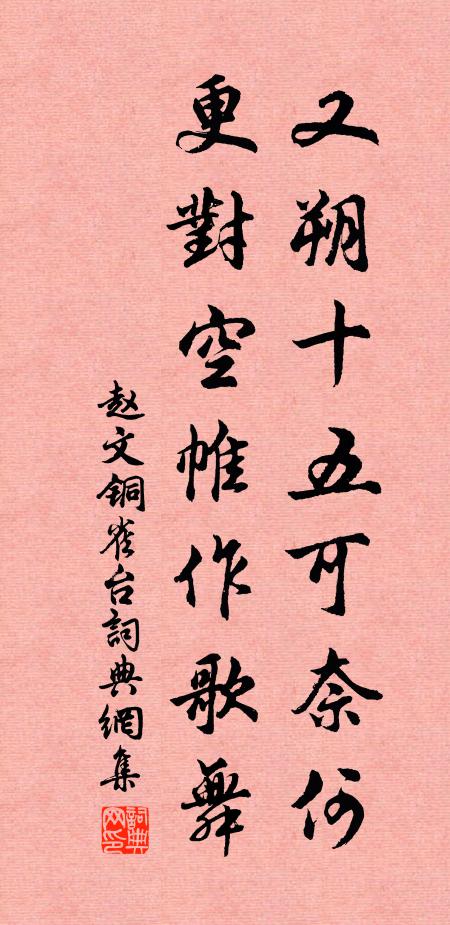 又朔十五可奈何
更對空帷作歌舞
赵文铜雀台詞典網集
詞典網印